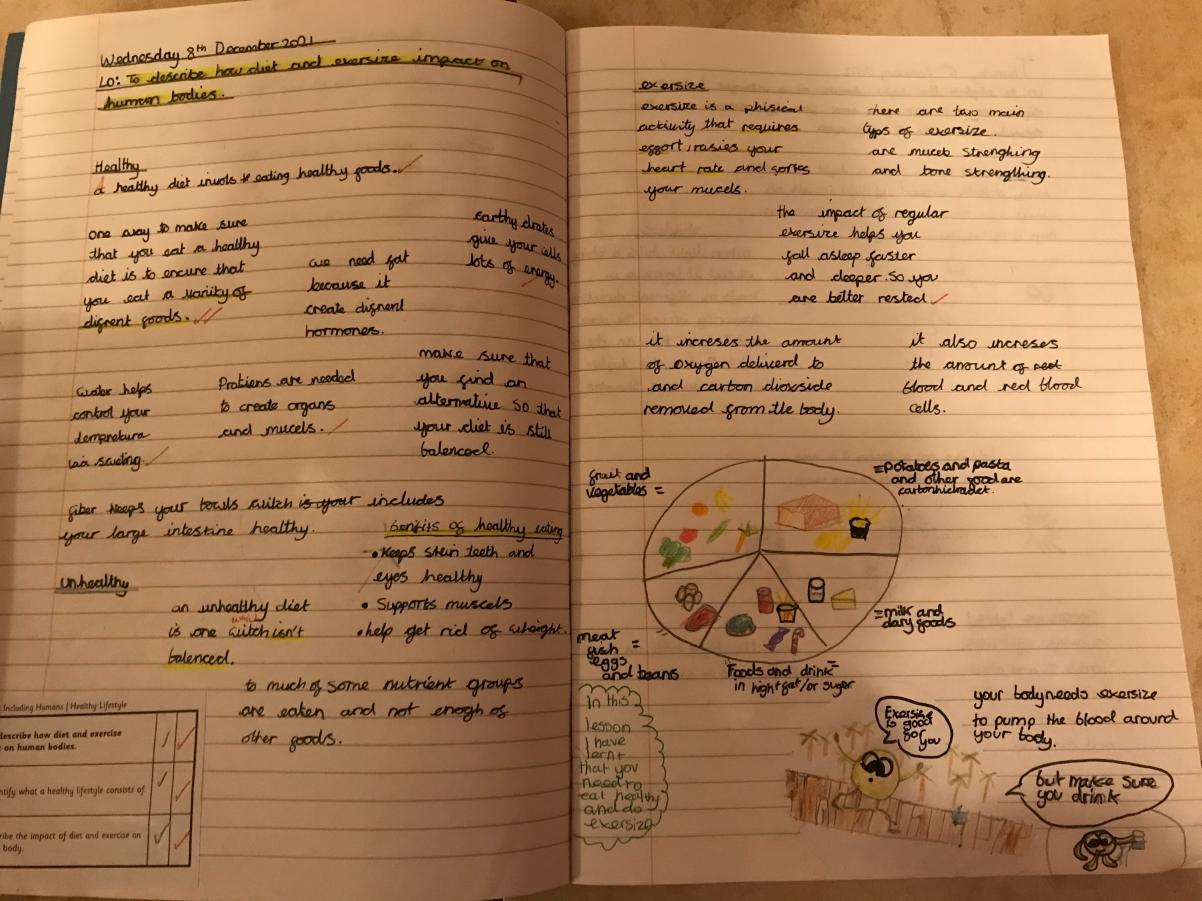 Wednesday 8th December 2021
LO: To describe how diet and exersize impact on
human bodies.
Healthy
a healthy diet invols eating healthy foods.
one way to make sure
that you eat a healthy
diet is to encure that
you eat a varity of
difrent foods.
we need fat
because it
create difrent
hormones.
carthydrates
give your cells
lots of energy.
water helps
control your
tempretura
via sweting.
Protiens are needed
to create organs
and mucels.
make sure that
you find an
alternative so that
your diet is still
balenced.
fiber keeps your bowls witch is your includes
your large intestine healthy.
benifits of healthy eating
• Keeps skin teeth and
eyes healthy
• Supports muscels
• help get rid of wheight.
unhealthy
an unhealthy diet
is one witch isn't
balenced.
to much of some nutrient groups
are eaten and not enogh of
other foods.
Including Humans | Healthy Lifestyle
describe how diet and exercise
on human bodies.
ntify what a healthy lifestyle consists of
ribe the impact of diet and exercise on
body.
exersize
exersize is a phisical
activity that requires
effort, rasies your
heart rate and works
your mucels.
there are two main
typs of exersize.
are mucel strenghing
and bone strengthing.
the impact of regular
exersize helps you
fall asleep faster
and deeper. So you
are better rested
it increses the amount
of oxygen deliverd to
and carbon dioxside
removed from the body.
it also increses
the amount of red
blood and red blood
cells.
fruit and
vegetables =
=potatoes and pasta
and other food are
=milk and
dary foods
meat
fish =
eggs
and beans
Foods and drink=
in high fat/or suger
In this
lesson
I have
lernt
that you
need to
eat healthy
and do
exersize
Exersize
is good
for you
your body needs exersize
to pump the blood around
your body.
but make sure
you drink